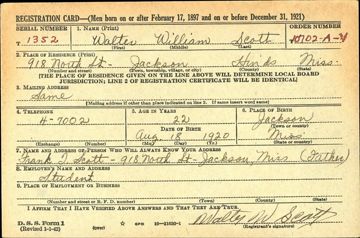 REGISTRATION CARD—(Men born on or after February 17, 1897 and on or before December 31, 1921)
SERIAL NUMBER 1. NAME (Print) ORDER NUMBER
T 1352 Walter William Scott 10102-A
(First) (Middle) (Last)
2. PLACE OF RESIDENCE (Print)
918 North St- Jackson Hinds Miss.
(Number and street) (Town, township, village, or city) (County) (State)
[THE PLACE OF RESIDENCE GIVEN ON THE LINE ABOVE WILL DETERMINE LOCAL BOARD
JURISDICTION; LINE 2 OF REGISTRATION CERTIFICATE WILL BE IDENTICAL]
3. MAILING ADDRESS
Same
[Mailing address if other than place indicated on line 2. If same insert word same]
4. TELEPHONE 5. AGE IN YEARS 6. PLACE OF BIRTH
4-7002 22 Jackson
DATE OF BIRTH (Town or county)
Aug 18 1920 Miss.
(Exchange) (Number) (Mo.) (Day) (Yr.) (State or country)
7. NAME AND ADDRESS OF PERSON WHO WILL ALWAYS KNOW YOUR ADDRESS
Frank T. Scott - 918 North St- Jackson, Miss. (Father)
8. EMPLOYER'S NAME AND ADDRESS
Student
9. PLACE OF EMPLOYMENT OR BUSINESS
(Number and street or R. F. D. number) (Town) (County) (State)
I AFFIRM THAT I HAVE VERIFIED ABOVE ANSWERS AND THAT THEY ARE TRUE.
D. S. S. Form 1
(Revised 1-1-42) (over) 16—21630-1 Walter W. Scott
(Registrant's signature)